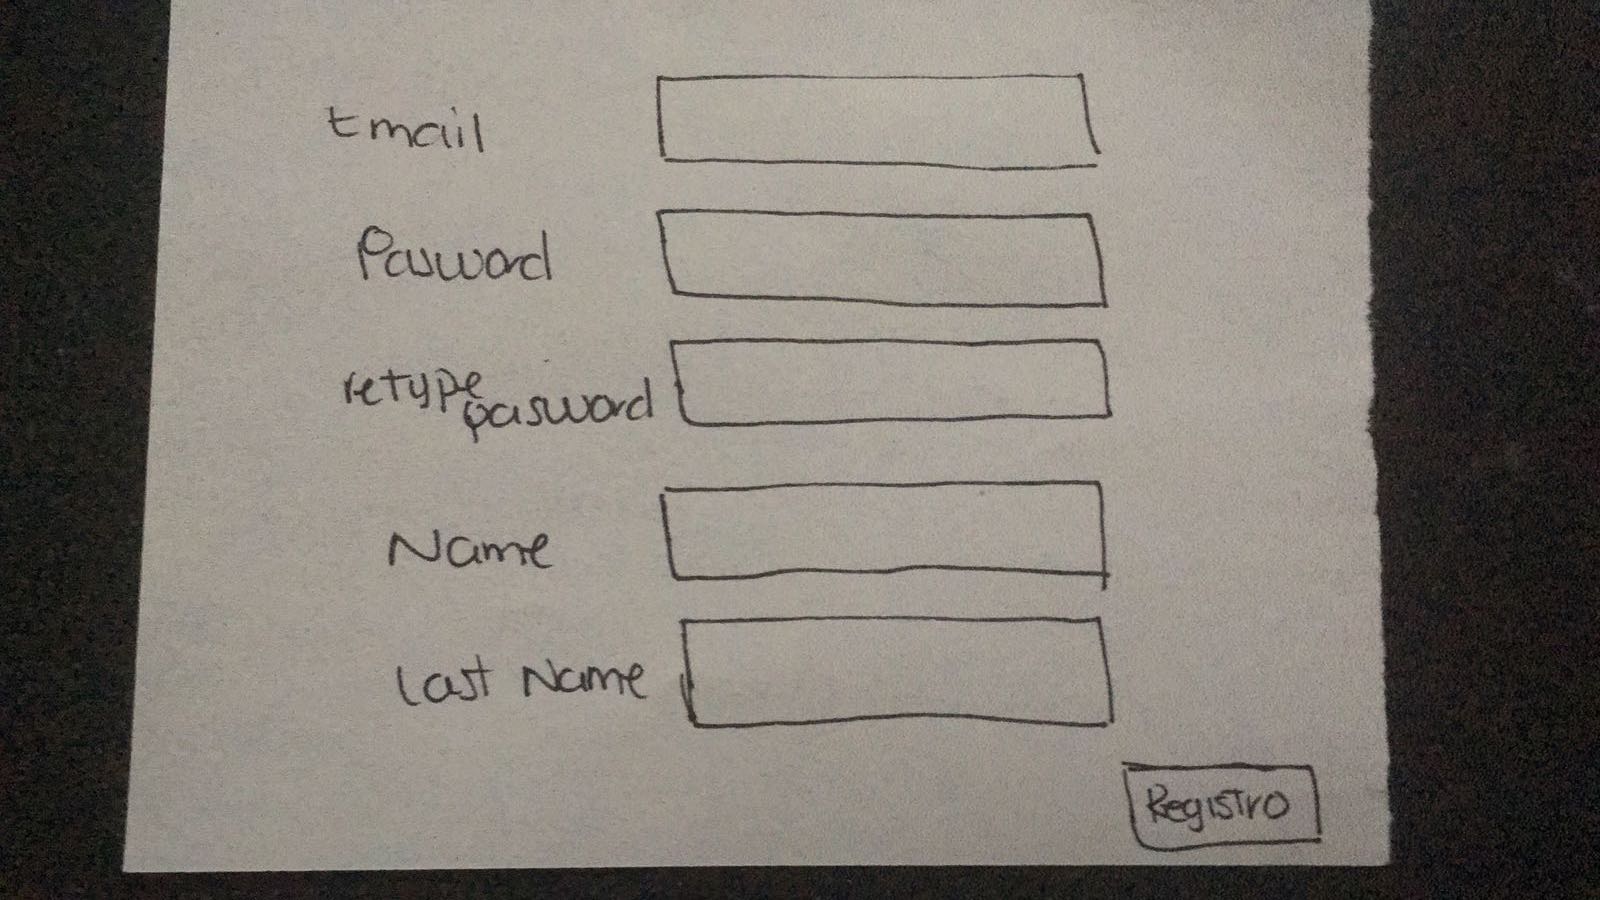 Email
Pasword
retype
pasword
Name
Last Name
Registro